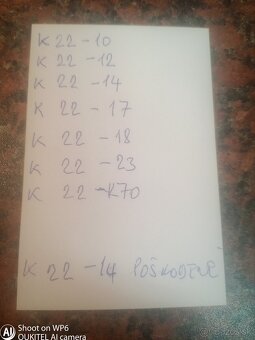 K 22 - 10
K 22 - 12
K 22 - 14
K 22 - 17
K 22 - 18
K 22 - 23
K 22 - K70
K 22 - 14 POŠKODENÉ
AI Shot on WP6
OUKITEL AI camera